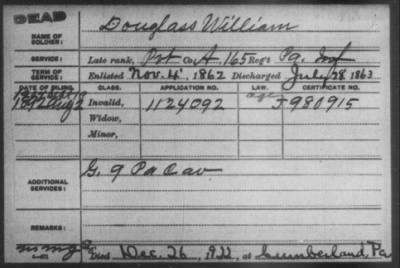 DEAD
Douglass William
NAME OF SOLDIER:
SERVICE: Late rank, Pvt Co. A, 165 Reg't Pa. Inf
TERM OF SERVICE: Enlisted Nov. 4, 1862 Discharged July 28 1863
DATE OF FILING. CLASS. APPLICATION NO. LAW. CERTIFICATE NO.
1892 Aug 2 Invalid, 1124092 age 980915
Widow,
Minor,
ADDITIONAL SERVICES: G. 9 Pa Cav
REMARKS:
Died Dec. 26, 1922, at Cumberland, Pa